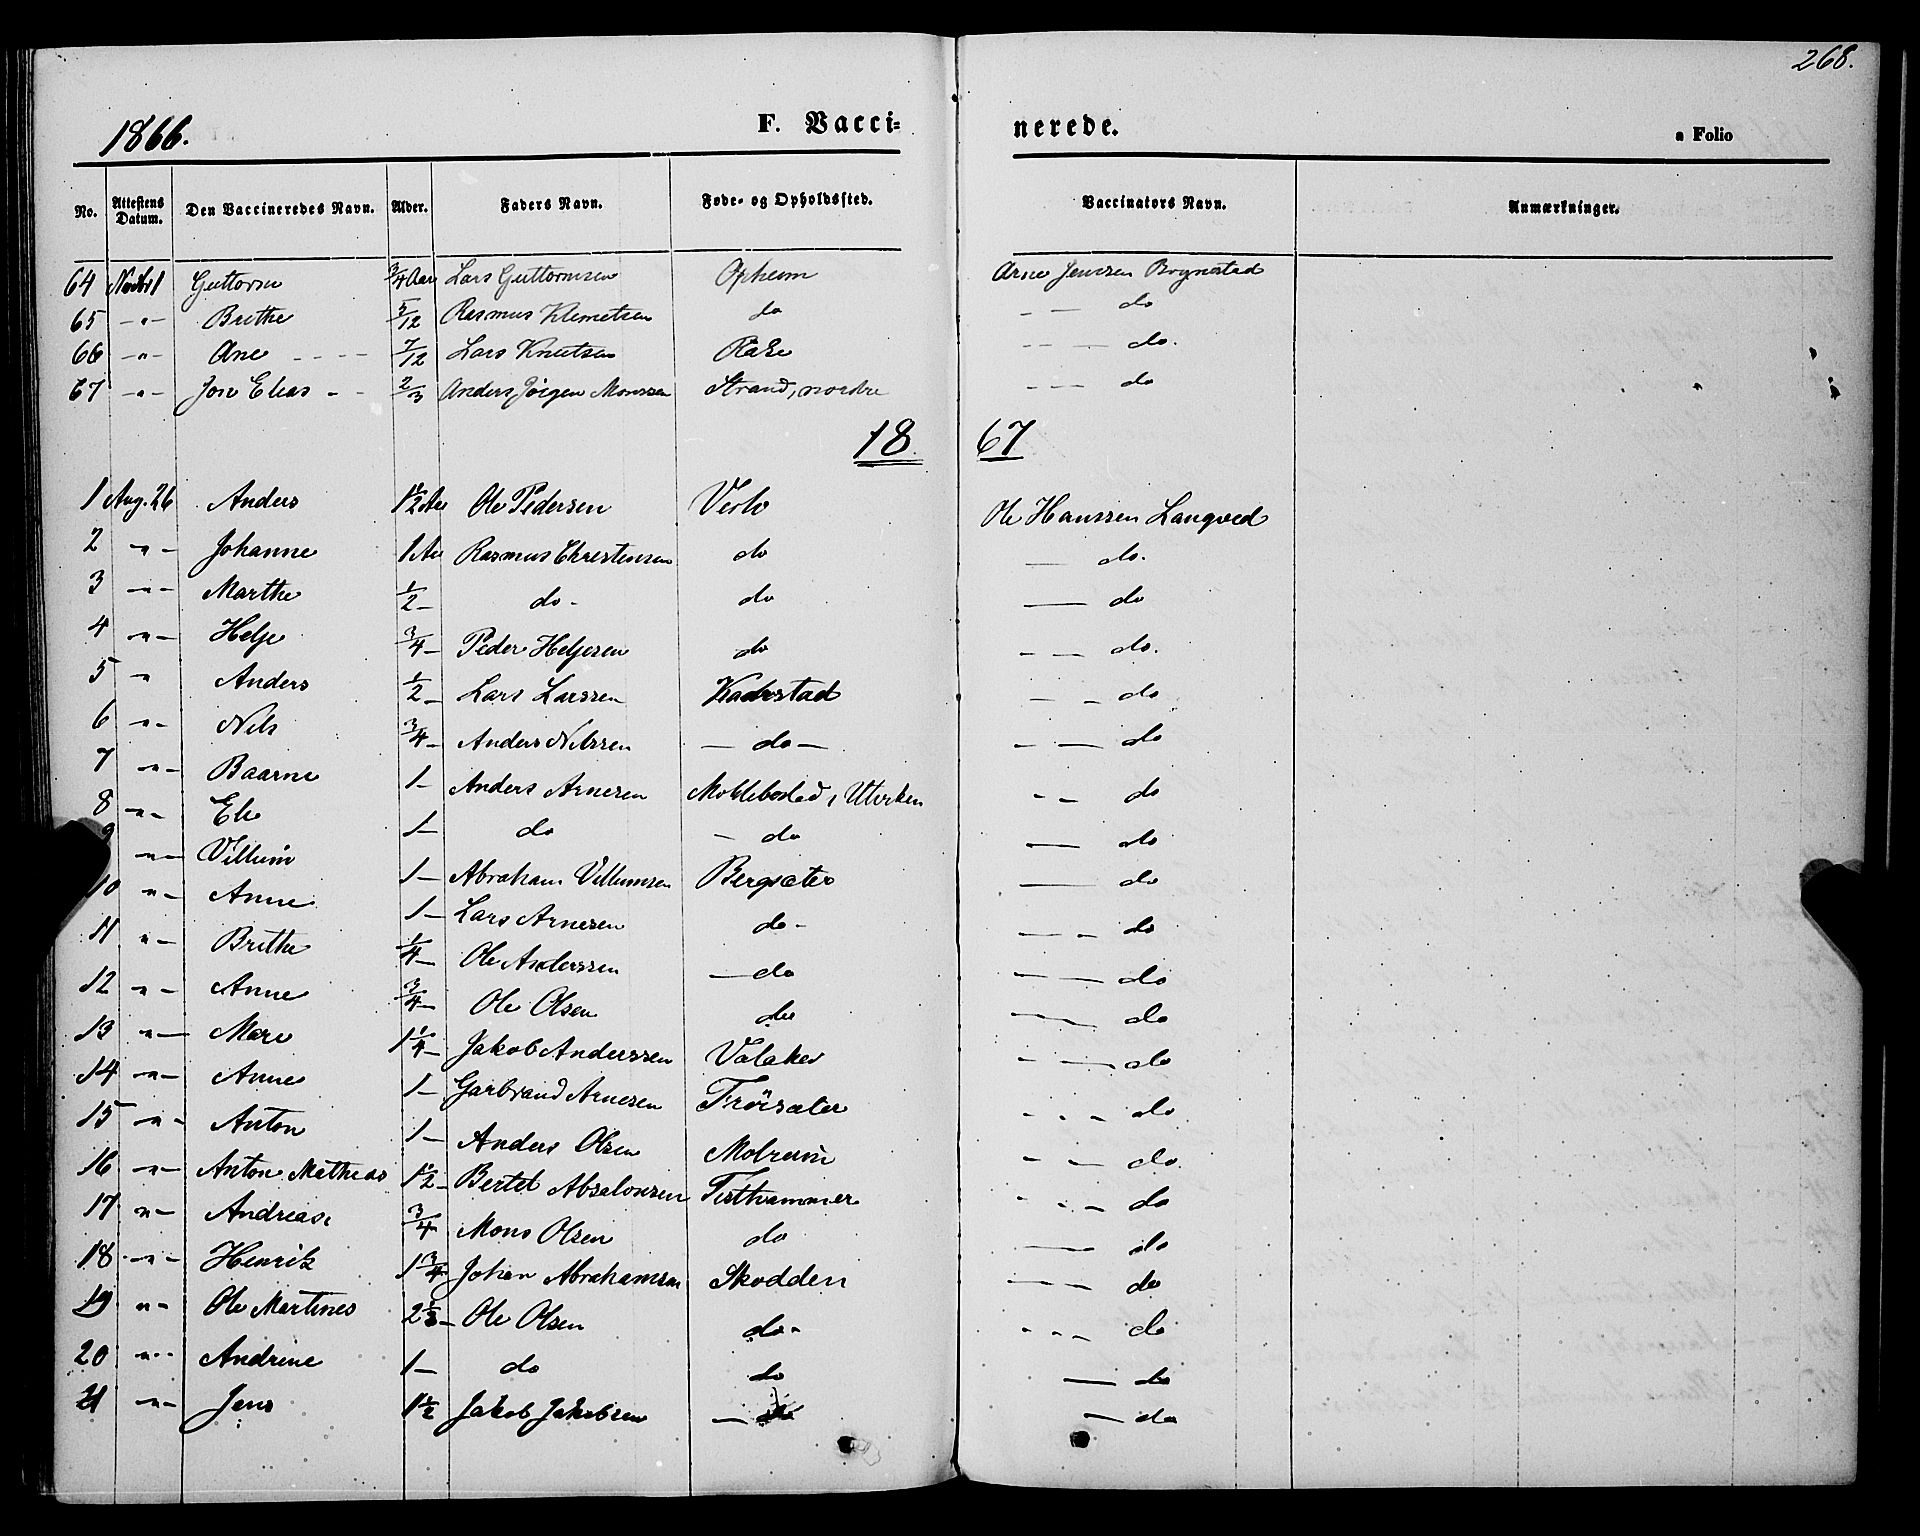 268.
1866. F. Vacci= nerede. a Folio
No. Attestens Datum. Den Vaccineredes Navn. Alder. Faders Navn. Føde- og Opholdssted. Vaccinators Navn. Anmærkninger.
64 Novbr 1 Guttorm 3/4 Aar Lars Guttormsen Opheim Arne Jenssen Brynestad
65 -"- Brithe 5/12 Rasmus Klemetsen do - — do
66 -"- Ane - - - - 7/12 Lars Knutsen Røke - - — do.
67 -"- Jon Elias - - 2/3 Anders Jörgen Monssen Strand, nordre - — - do
18 67
1 Aug. 26 Anders 1 1/2 Aar Ole Pedersen Ole Hanssen Langved
2 -"- Johanne 1 Aar Rasmus Christensen do — do.
3 -"- Marthe 1/2 - do - do — do
4 -"- Helje 3/4 - Peder Heljesen do - — do.
5 " Anders 1/2 - Lars Larssen — - do
6 -"- Nils 3/4 - Anders Nilssen — do — - — do
7 -"- Baarne 1 - Anders Arnesen - - do
8 -"- Eli 1 - do - do — do
9 -"- Villum 1 - Abraham Villumsen Bergsæter — do
10 "- Anne 1 - Lars Arnesen do - — - do
11 "- Brithe 1/4 - Ole Anderssen — do — — do
12 "- Anne 3/4 - Ole Olsen do — — do
13 "- Mari 1 1/4 - Jakob Anderssen Valaker - — do
14 -"- Anne 1 - Garbrand Arnesen Fröisæter - - - do
15 -"- Anton 1 - Anders Olsen - - do.
16 -"- Anton Mathias 1 1/2 - Bertel Absalonsen Festhammer - - - do
17 "- Andreas 3/4 Mons Olsen do — — do
18 -"- Henrik 1 3/4 Johan Abrahamsen Skodden — — do
19 "- Ole Martines 2 1/3 - Ole Olsen do - - - - do
20 "-- Andrine 1 - do do — do
21 -"- Jens 1 1/2 Jakob Jakobsen — do — do